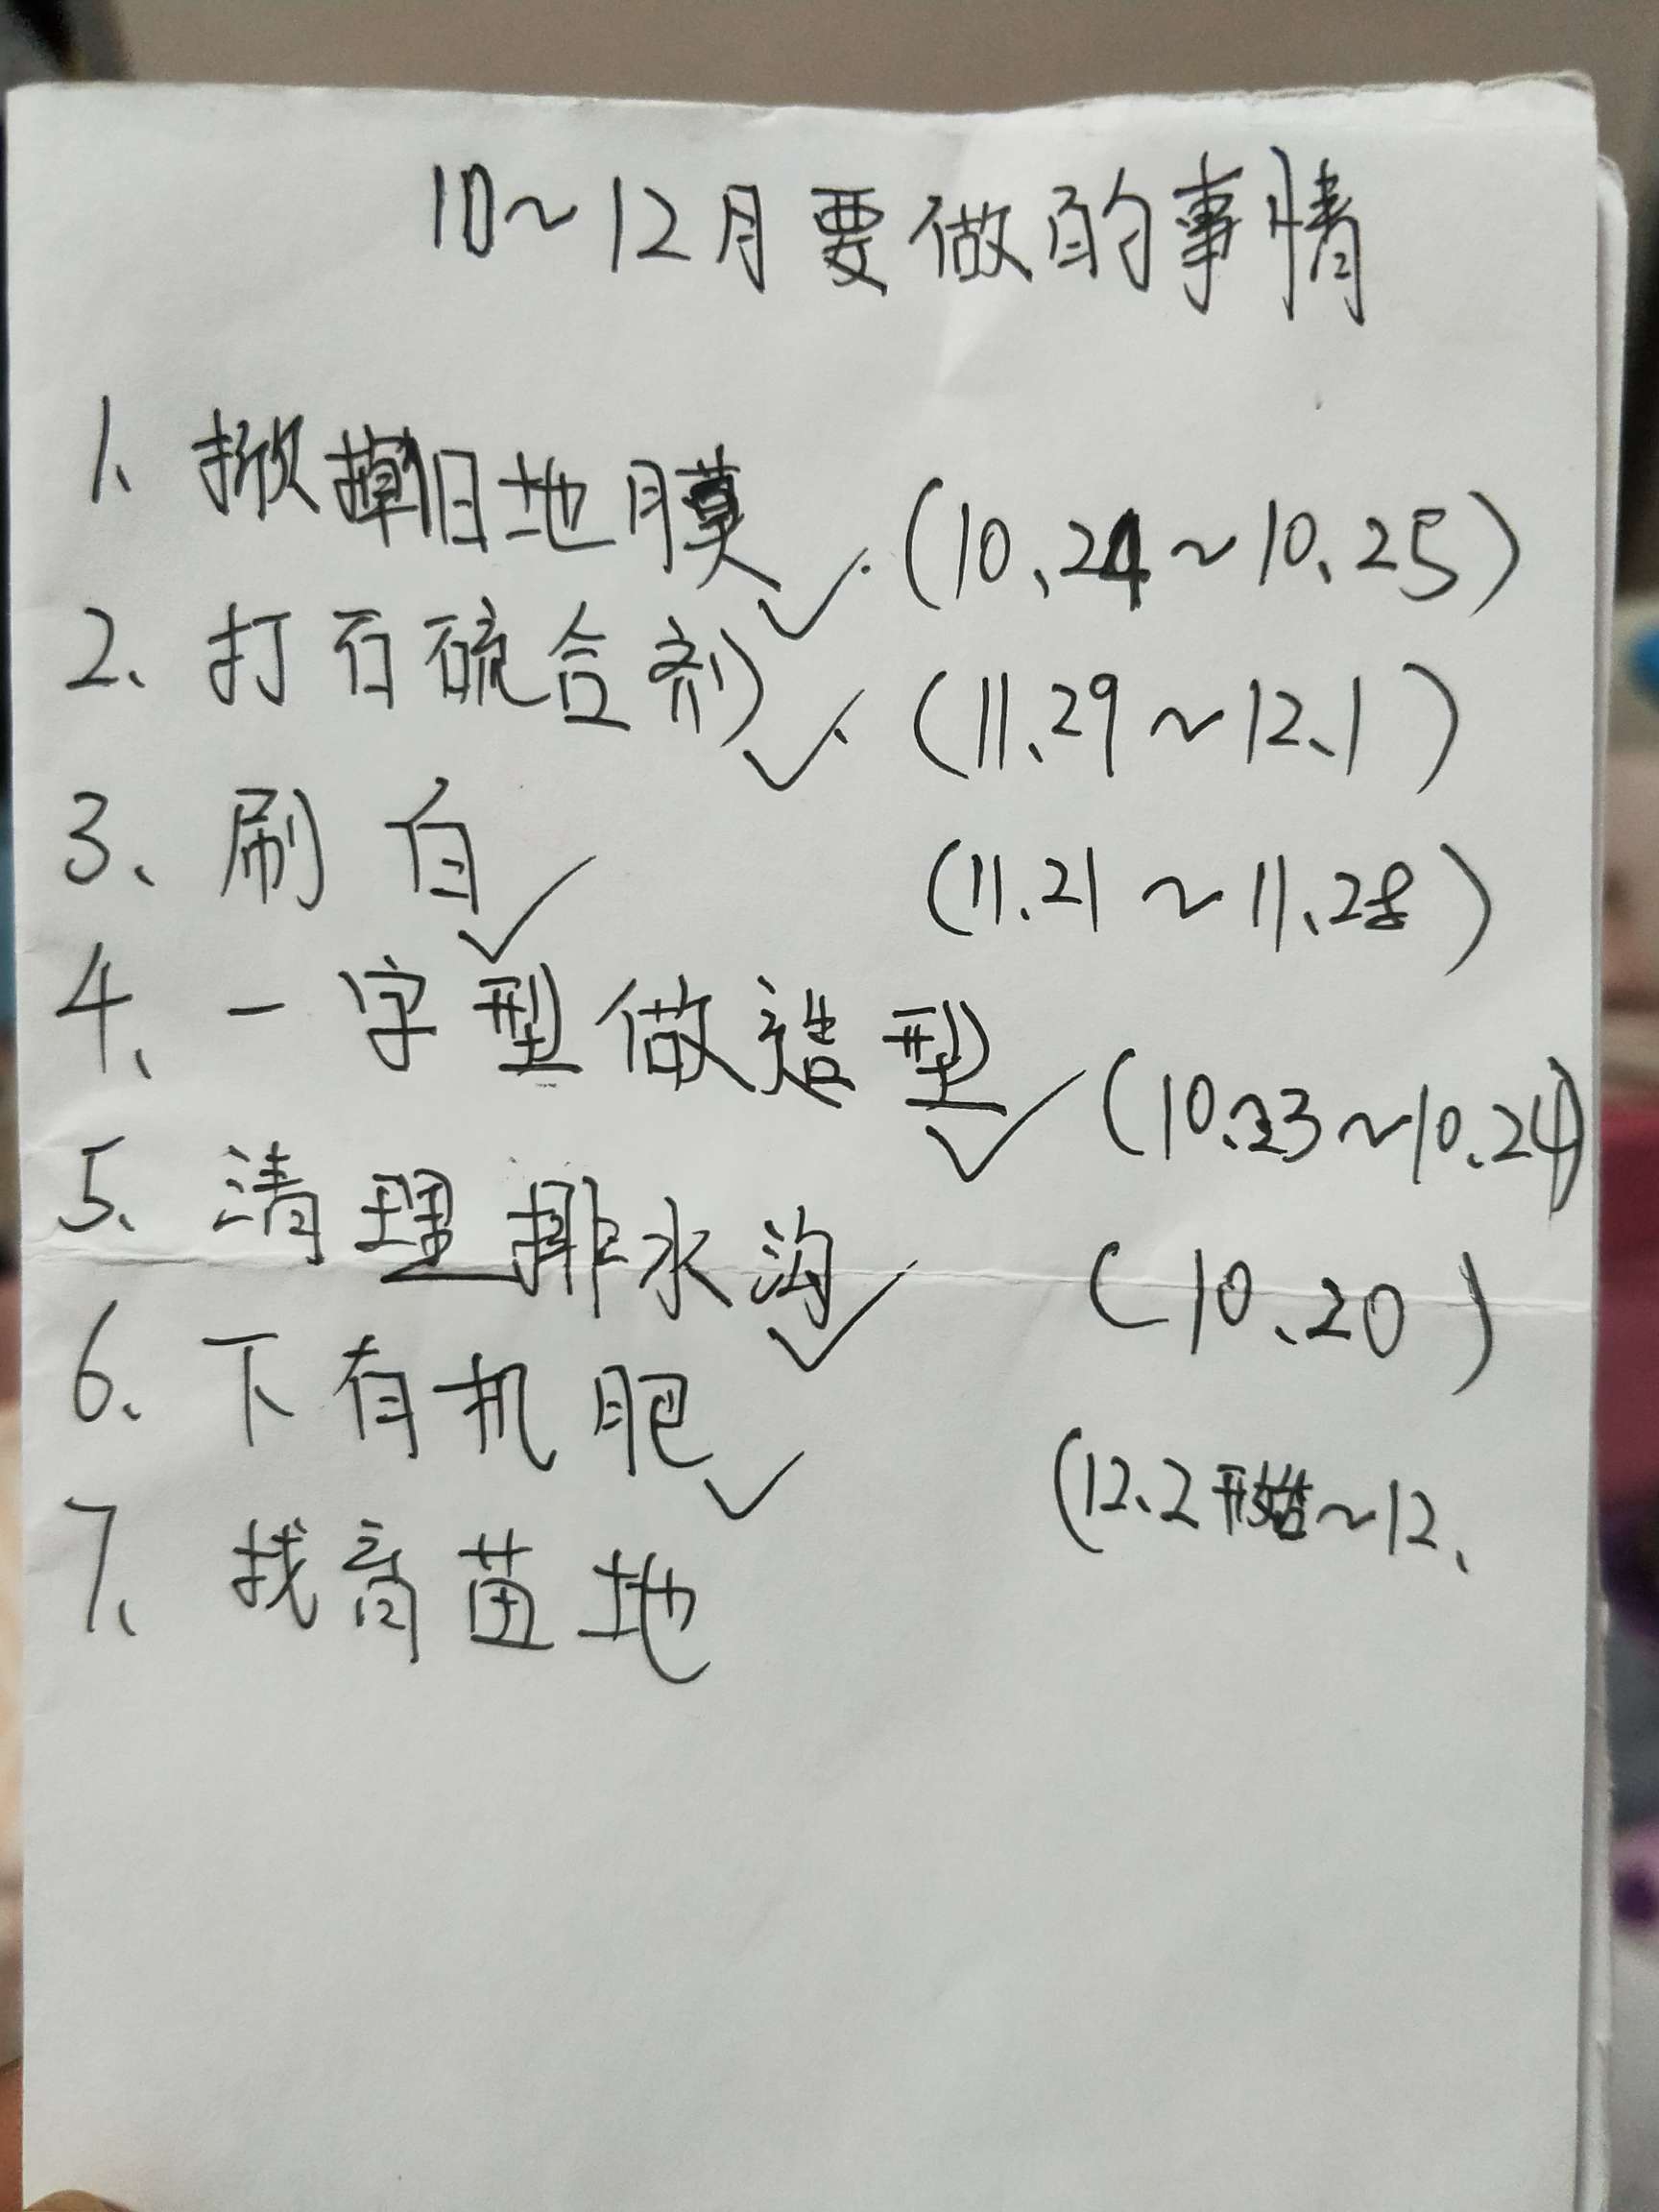 10~12月要做的事情
1、掀掉旧地膜✓.(10、24~10、25)
2、打石硫合剂✓.(11、29~12、1)
3、刷白✓(11.21~11、28)
4、一字型做造型✓(10.23~10.24)
5、清理排水沟✓(10、20)
6、下有机肥✓(12.2开始~12、
7、找育苗地